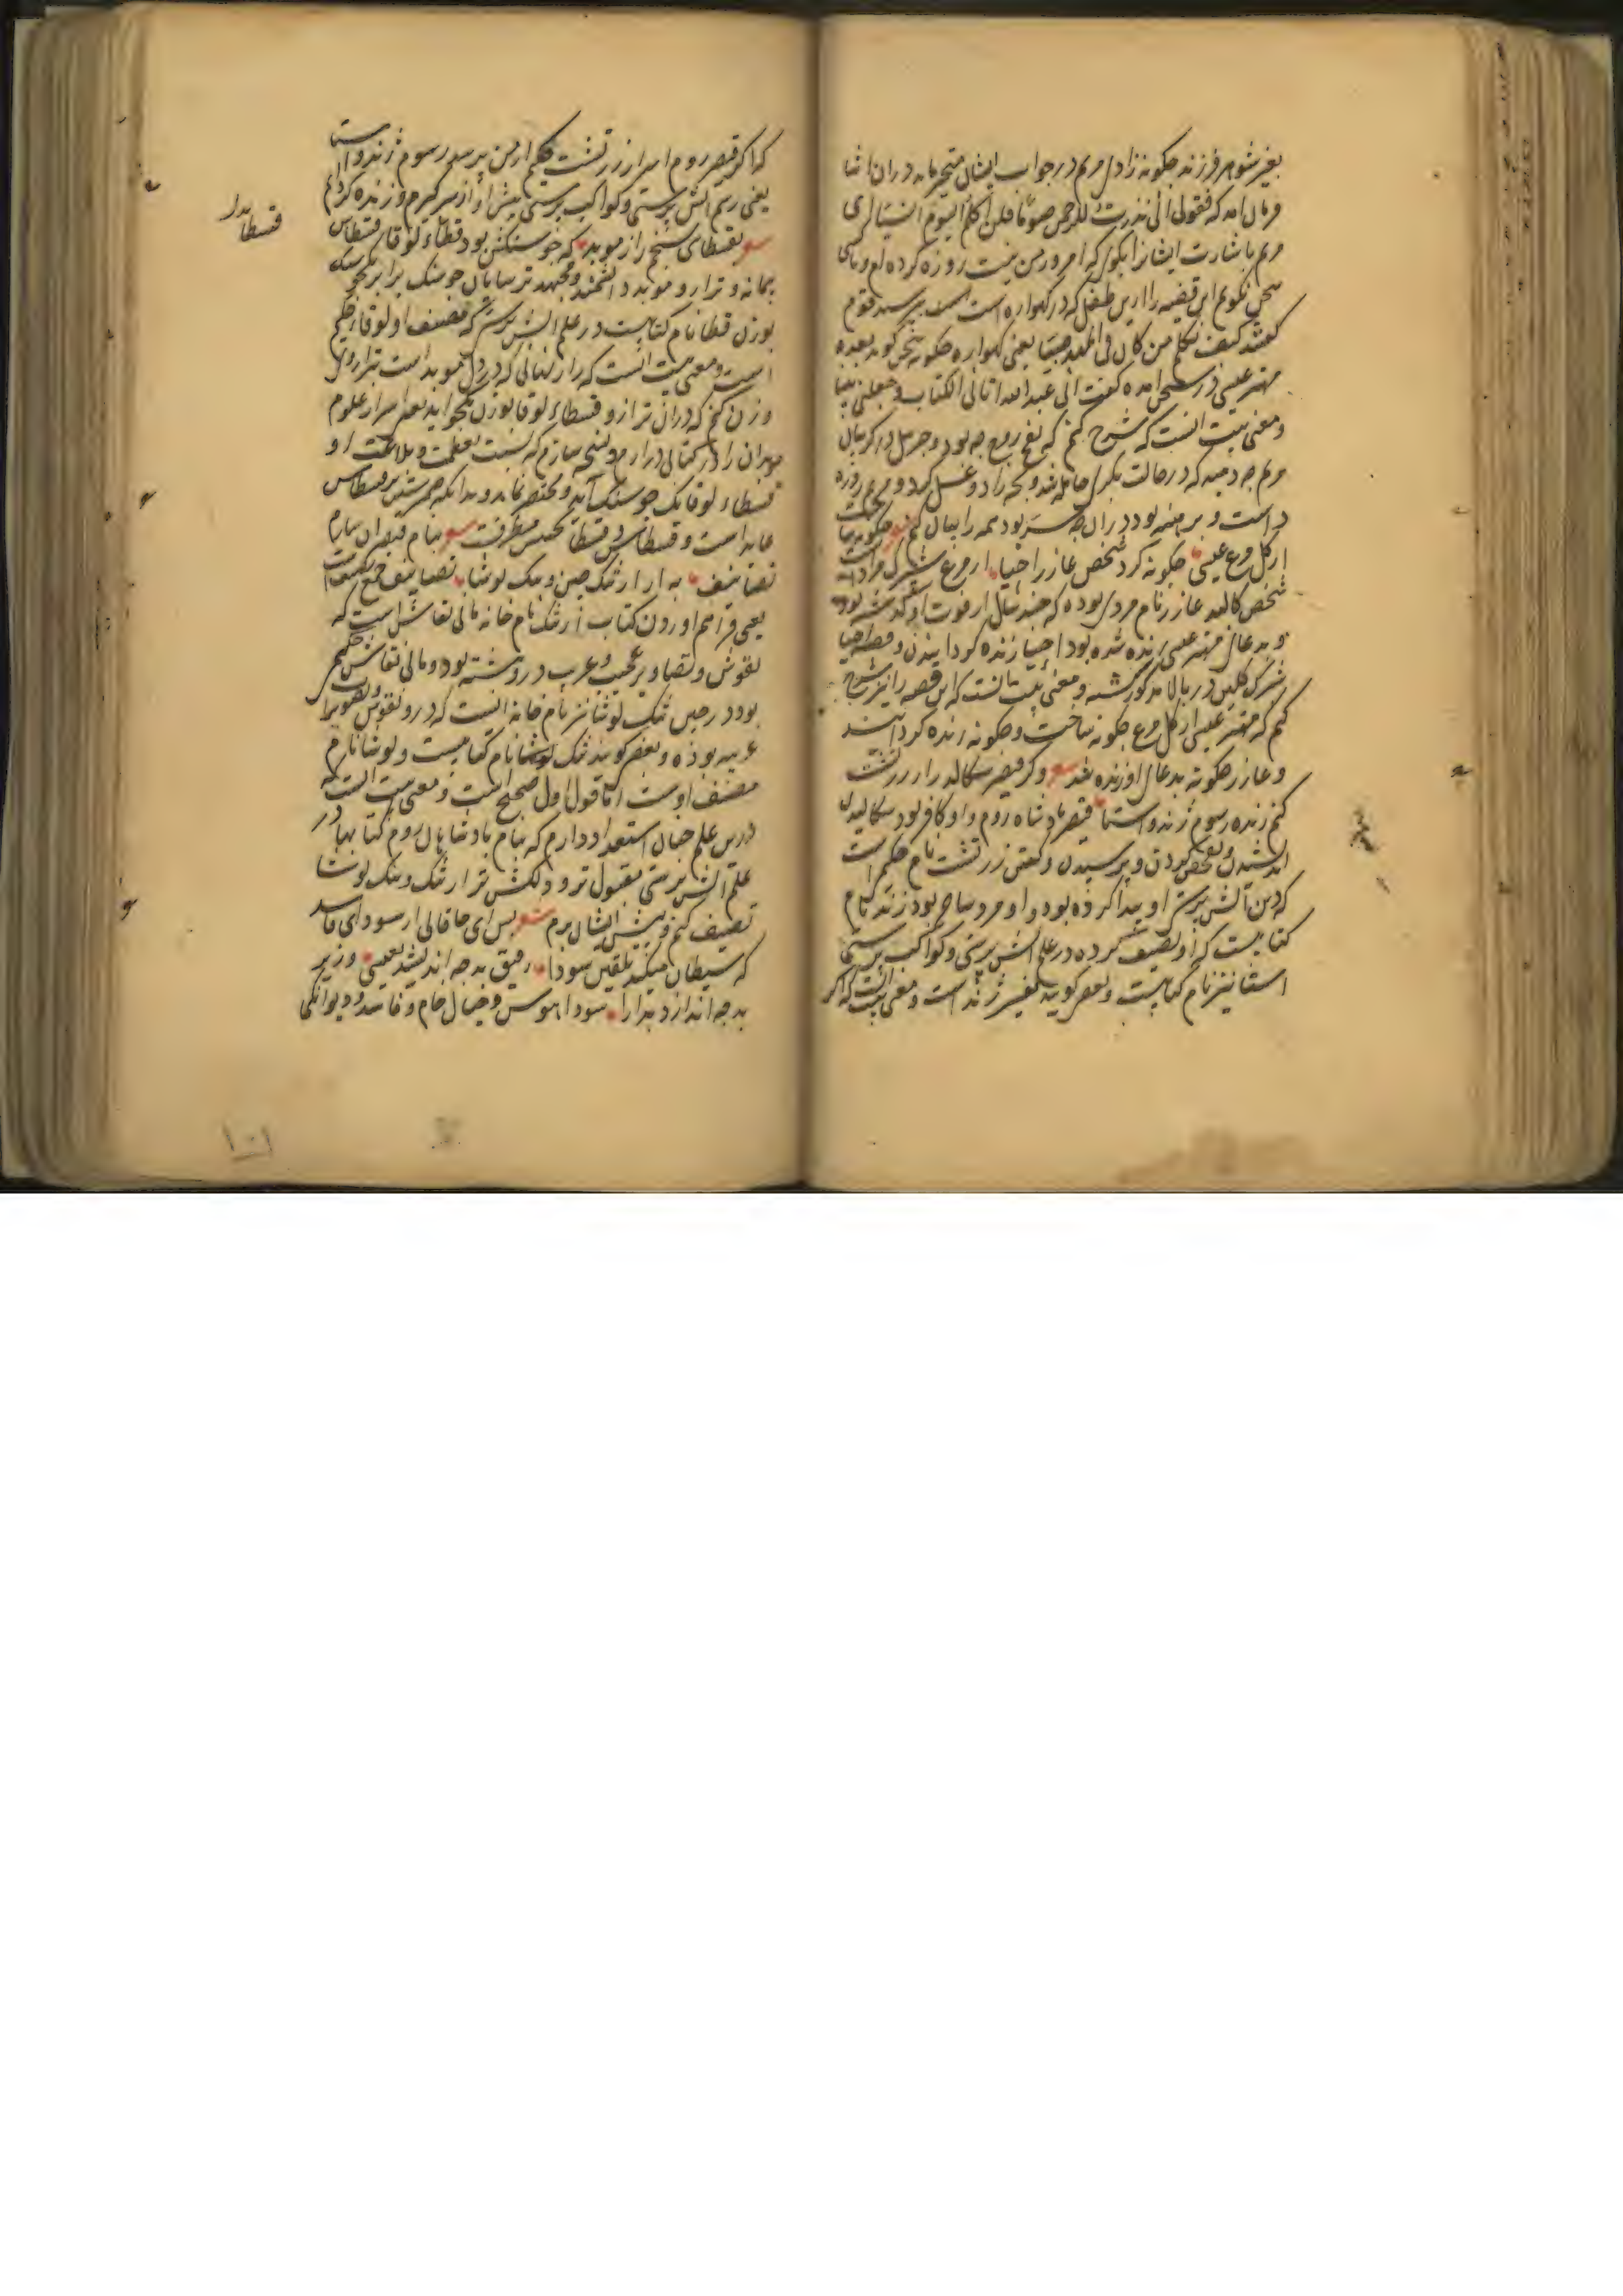 بغیر شوهر فرزند چکونه زادی مریم در جواب ایشان متحیر ماند در ان اثنا
فرمان امد که فقولی انی نذرت للرحمن صوما فلن اکلم الیوم انسیا ای
مریم باشارت ایشانرا بکوی که امروز من نیت روزه کرده ام و با کسی
سخن نکویم این قضیه را ازین طفل که در کهواره است بپرسید قوم
کفتند کیف نکلم من کان فی المهد صبیا یعنی کهواره چکونه سخن کوید بعده
مهتر عیسی در سخن امده کفت انی عبد الله اتانی الکتاب و جعلنی نبیا
و معنی بیت انست که شرح کنم که نفخ روح چه بود و جبریل در کریبان
مریم چه دمید که در حالت بکری حامله شد و بچه زاد و غسل کرد و مریم روزه
داشت و برهنه بود در ان چه سر بود همه را بیان کنم شعر چکونه ساخت
از کل مرغ عیسی چکونه کرد شخص عازر احیا از مرغ شبپرک مراد است
شخص کالبد عازر نام مردی بوده که چند سال از فوت او کذشته بود
و بدعای مهتر عیسی زنده شده بود احیا زنده کردانیدن و قصه احیا
شبرک کلین در بالا مذکور کشته و معنی بیت انست که این قصه را نیز شرح
کنم که مهتر عیسی از کل مرغ چکونه ساخت و چکونه زنده کردانید
و عازر چکونه بدعای او زنده شد شعر وکر قیصر سکالد راز زرتشت
کنم زنده رسوم زند و استا قیصر بادشاه روم و او کافر بود سکالیدن
اندیشیدن و تفحص کردن و پرسیدن و کفتن زرتشت نام حکیم است
که دین آتش پرستی او پیدا کرده بود و او مرد ساحر بود زند نام
کتابیست که او تصنیف کرده در علم اتش پرستی و کواکب پرستی
استا نیز نام کتابیست و بعضی کویند تفسیر زند است و معنی بیت انست که اکر
که اکر قیصر روم اسرار زرتشت حکیم از من پرسد رسوم زند و استا
یعنی رسم اتش پرستی و کواکب پرستی پیش او از سر کیرم و زنده کردانم
شعر بقسطای سنجم راز موبد که جو سنکش بود قسطاء لوقا قسطاس
پیمانه و ترازو موبد دانشمند و مجتهد ترسایان جو سنک برابر یکجو سنک
بوزن قسطا نام کتابیست در علم اتش پرستی که مصنف او لوقا حکیم
است و معنی بیت انست که راز نهانی که در دل موبد است بترازوی
وزن کنم که دران ترازو قسطاء لوقا بوزن یکجو اید یعنی اسرار علوم
موبدان را در کتابی درارم و نسخه سازم که نسبت بعظمت و بلاغت او
قسطاء لوقا یک جو سنک آید و مختصر نماید و بدانکه ضمیر شین بر قسطاس
عاید است و قسطاس و قسطا تجنیس مطرفست شعر بنام قیصران سازم
تصانیف به از ارتنک چین و تنک لوشا تصانیف جمع تصنیفست
یعنی فراهم اوردن کتاب ارتنک نام خانه مانی نقاش است که
نقوش و تصاویر عجیب و غریب درو نبشته بود و مانی نقاش حکیمی
بود در چین تنک لوشا نیز نام خانه ایست که درو نقوش و تصویرات
غریبه بوده و بعضی کویند تنک لوشا نام کتابیست و لوشا نام
مصنف اوست اما قول اول صحیح است و معنی بیت انست که
در من علم چنان استعداد دارم که بنام بادشاهان روم کتابها در
علم اتش پرستی مقبول تر و دلکش تر از ارتنک و تنک لوشا
تصنیف کنم و پیش ایشان برم شعر بس ای خاقانی از سودای فاسد
که شیطان میکند تلقین سودا رفیق بد چه اندیشد بعیسی وزیر
بد چه اندازد بدارا سودا هوس و خیال خام و فاسد و دیوانکی
قسطا
۱۰۱